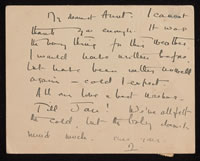 My dearest Aunt: I cannot
thank you enough. It was
the very thing for this weather
I would have written before,
but have been rather
again a cold I expect.
All our love & best wishes.
Till Jan! We've all felt
the cold but the baby doesn't
mind much.